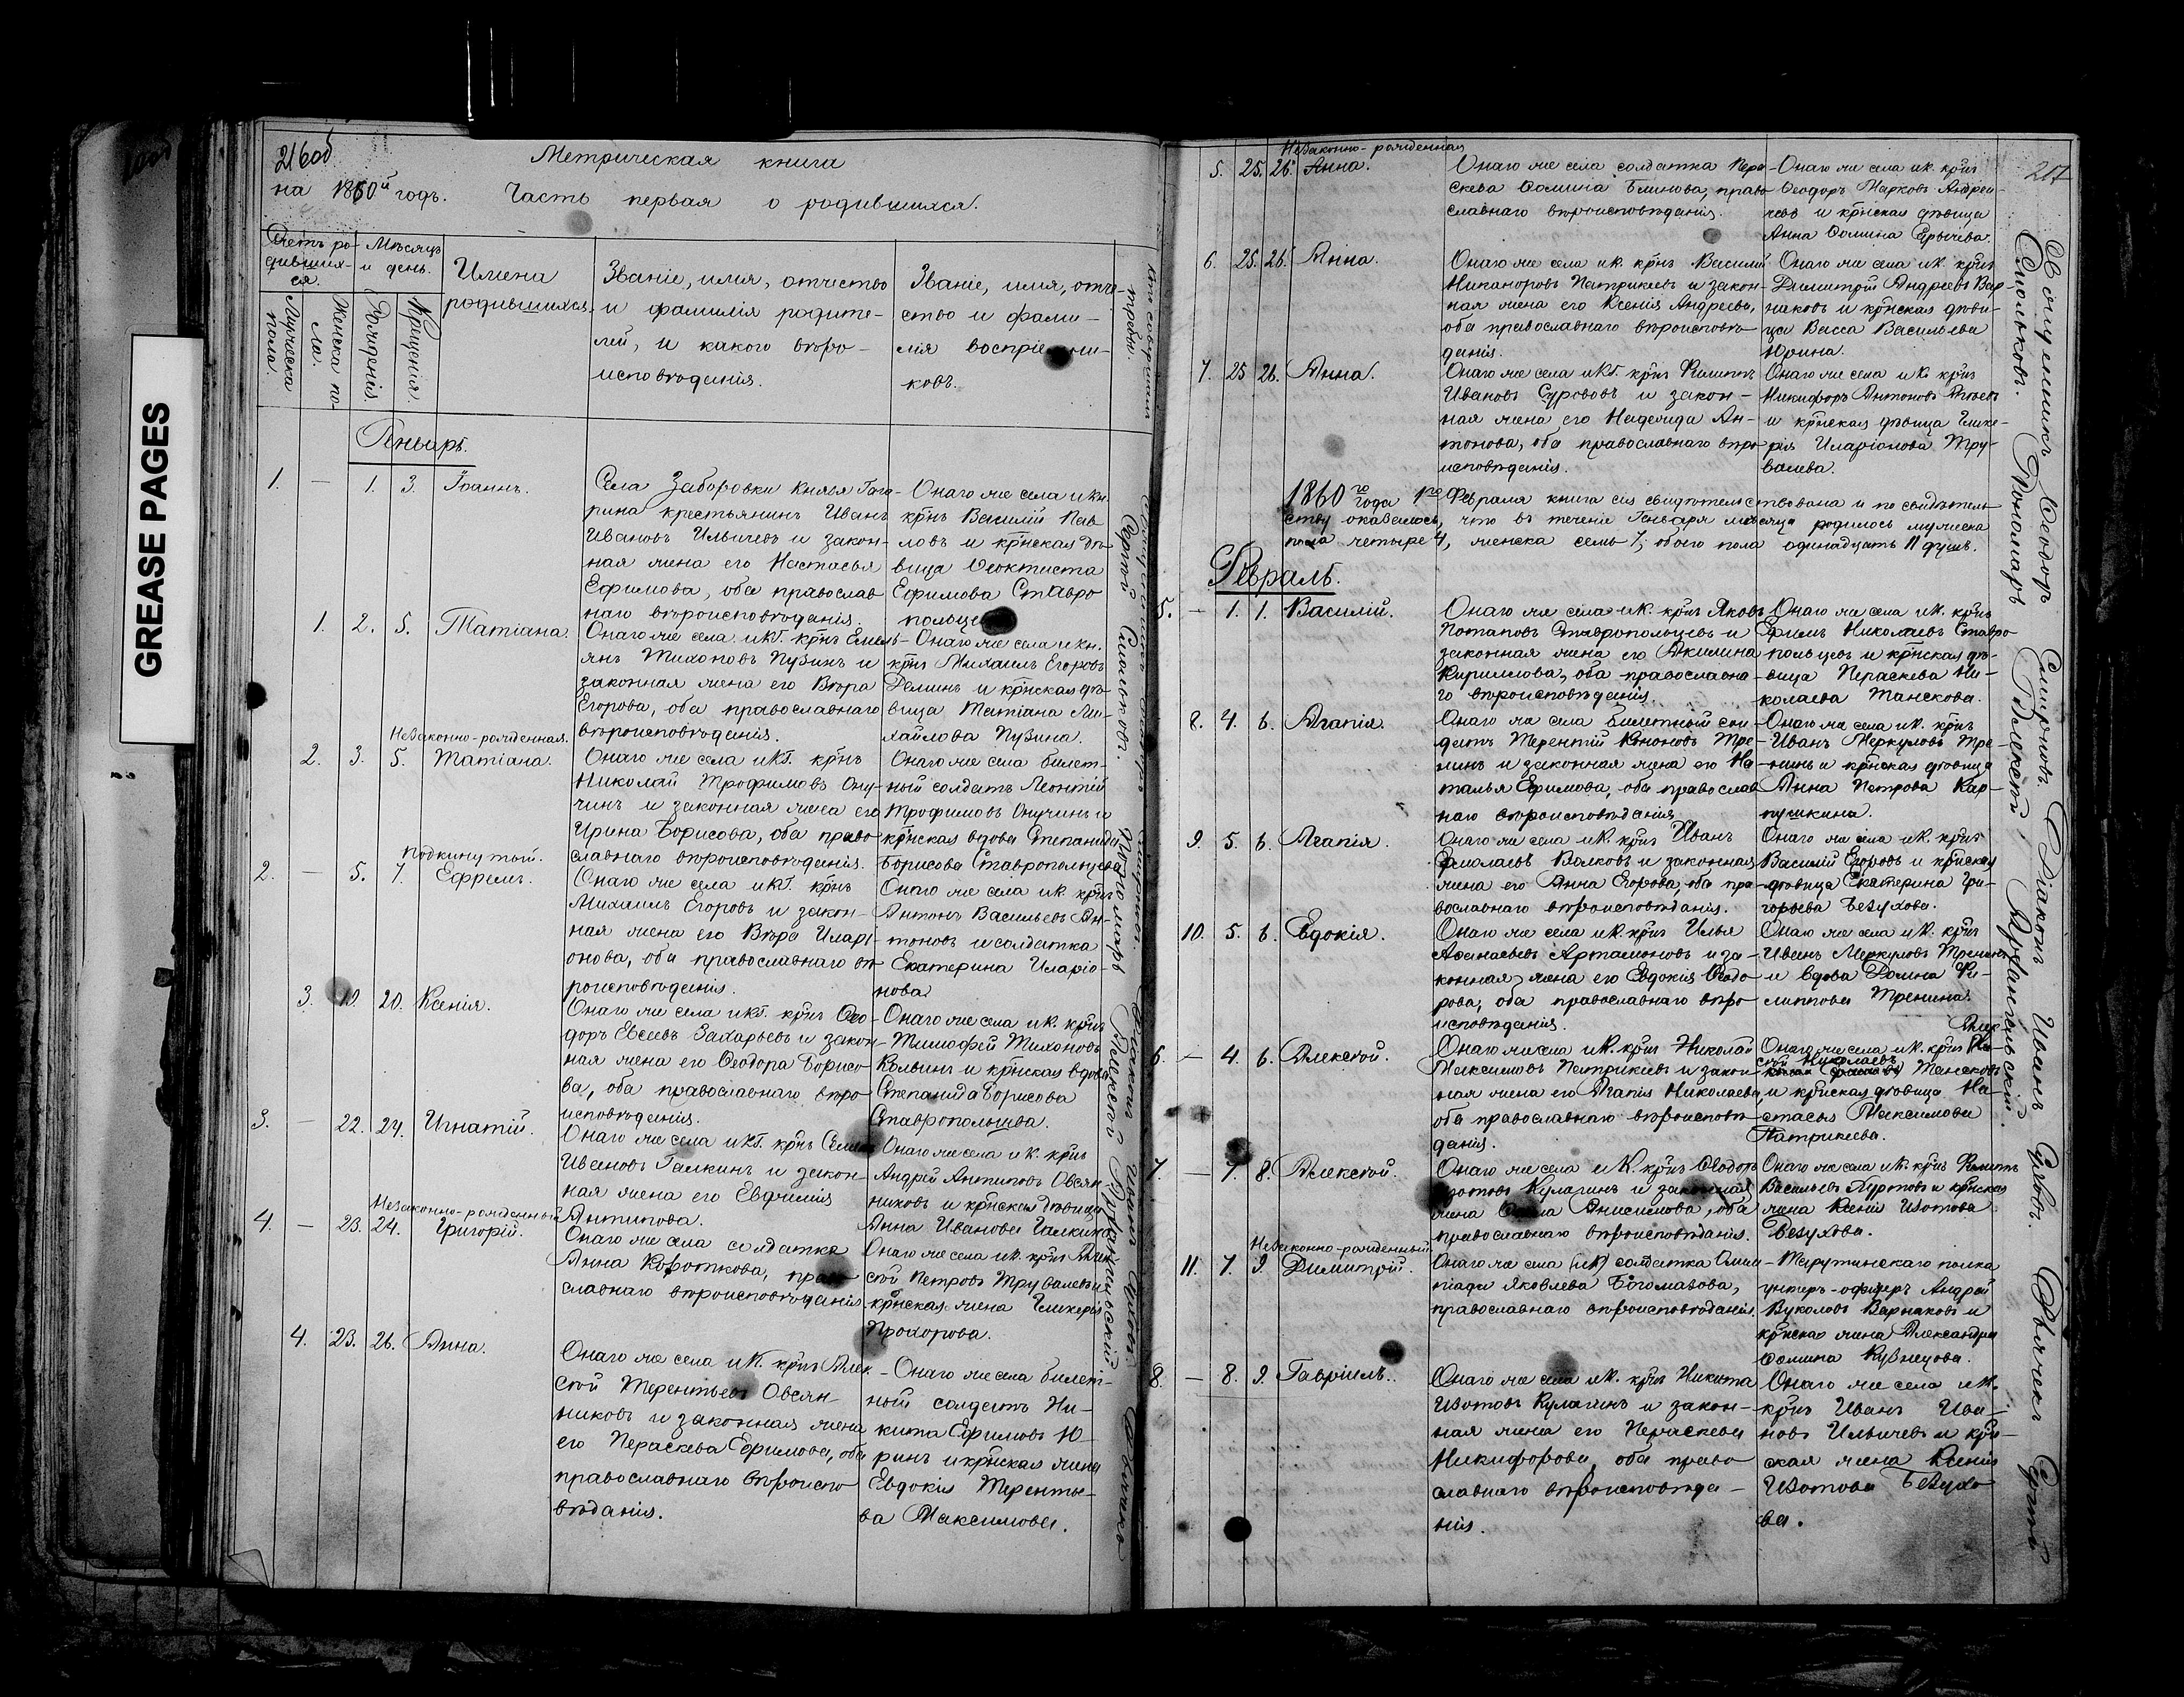 GREASE PAGES
216об
Метрическая книга
на 1860й годъ. Часть первая о родившихся.
Счетъ ро-
дивших-
ся.
Мѣсяцъ
и день.
Мужеска
пола.
Женска по-
ла.
Рожденія.
Крещенія.
Имена
родившихся.
Званіе, имя, отчество
и фамилія родите-
лей, и какого вѣро-
исповѣданія.
Званіе, имя, отче-
ство и фами-
лія воспріемни-
ковъ.
Кто совершалъ
требы.
Генварь.
1. — 1. 3. Іоаннъ.
Села Заборовки Князя Гага-
рина крестьянинъ Иванъ
Ивановъ Ильичевъ и закон-
ная жена его Настасья
Ефимова, оба православ
наго вѣроисповѣданія.
Онаго же села и Кн.
крнъ Василій Пав
ловъ и крнская дѣ-
вица Ѳеоктиста
Ефимова Ставро
польце
1. 2. 5. Татіана.
Онаго же села и КГ. крнъ Емель-
янъ Тихоновъ Пузинъ и
законная жена его Вѣра
Егорова, оба православнаго
вѣроисповѣданія.
Онаго же села и Кн.
крнъ Михаилъ Егоровъ
Деминъ и крнская дѣ-
вица Татіана Ми-
хайлова Пузина.
Незаконно-рожденная.
2. 3. 5. Татіана.
Онаго же села и КГ. крнъ
Николай Трофимовъ Ону-
чинъ и законная жена его
Ирина Борисова, оба право-
славнаго вѣроисповѣданія.
Онаго же села билет-
ный солдатъ Леонтій
Трофимовъ Онучинъ и
крнская вдова Степанида
Борисова Ставропольцева
подкинутый.
2. — 5. 7. Ефремъ.
Онаго же села и КГ. крнъ
Михаилъ Егоровъ и закон-
ная жена его Вѣра Илари-
онова, оба православнаго вѣ-
роисповѣданія.
Онаго же села и К. крнъ
Антонъ Васильевъ Ан-
тоновъ и солдатка
Екатерина Иларіо-
нова
3. 19. 20. Ксенія.
Онаго же села и КГ. крнъ Ѳео-
доръ Евсеевъ Захарьевъ и закон-
ная жена его Ѳеодора Борисо-
ва, оба православнаго вѣро-
исповѣданія.
Онаго же села и К. крнъ
Тимофей Тихоновъ
Кольвинъ и крнская вдова
Степанида Борисова
Ставропольцева.
3. — 22. 24. Игнатій.
Онаго же села и КГ. крнъ Семенъ
Ивановъ Галкинъ и закон-
ная жена его Евфимія
Антипова.
Онаго же села и К. крнъ
Андрей Антиповъ Овсян
никовъ и крнская дѣвица
Анна Иванова Галкина
Незаконно-рожденный
4. — 23. 24. Григорій.
Онаго же села солдатка
Анна Короткова, право
славнаго вѣроисповѣданія.
Онаго же села и К. крнъ Алек
сѣй Петровъ Трувалевъ и
крнская жена Гликерія
Прохорова.
4. 23. 26. Анна.
Онаго же села и К. крнъ Алек-
сѣй Терентьевъ Овсян-
никовъ и законная жена
его Параскева Ефимова, оба
православнаго вѣроиспо-
вѣданія.
Онаго же села билет-
ный солдатъ Ни-
кита Ефимовъ Ю-
ринъ и крнская жена
Евдокія Терентье-
ва Максимова.
Сергей Смольковъ. Пономарь Алексѣй Архангельскій.
217
Незаконно-рожденная
5. 25. 26. Анна.
Онаго же села солдатка Пара-
скева Ѳомина Блинова, право
славнаго вѣроисповѣданія.
Онаго же села и К. крнъ
Ѳеодоръ Марковъ Андрее-
чевъ и крнская дѣвица
Анна Ѳомина Ерычева.
6. 25. 26. Анна.
Онаго же села и К. крнъ Василій
Никаноровъ Патрикеевъ и закон-
ная жена его Ксенія Андреева,
оба православнаго вѣроисповѣ-
данія.
Онаго же села и К. крнъ
Димитрій Андреевъ Вар-
наковъ и крнская дѣви-
ца Васса Васильева
Юрина.
7. 25 26. Анна.
Онаго же села и КГ. крнъ Филиппъ
Ивановъ Сурововъ и закон-
ная жена его Надежда Ан-
тонова, оба православнаго вѣро
исповѣданія.
Онаго же села и К. крнъ
Никифоръ Антоновъ
и крнская дѣвица Глике-
рія Иларіонова Тру-
валева.
1860го года 1го Февраля книга сія свидѣтельствована и по свидѣтель-
ству оказалось, что въ теченіе Генваря мѣсяца родилось мужеска
пола четыре 4, женска семь 7, обоего пола одинадцать 11 душъ.
Февраль.
5. — 1. 1. Василій.
Онаго же села и К. крнъ Яковъ
Потаповъ Ставропольцевъ и
законная жена его Акилина
Кириллова, оба православна-
го вѣроисповѣданія.
Онаго же села и К. крнъ
Ефимъ Николаевъ Ставро-
польцевъ и крнская дѣ-
вица Параскева Ни-
колаева Танскова.
8. 4. 6. Агапія.
Онаго же села билетный сол-
датъ Терентій Кононовъ Тре-
нинъ и законная жена его На-
талья Ефимова, оба православ
наго вѣроисповѣданія.
Онаго же села и К. крнъ
Иванъ Меркуловъ Тре-
нинъ и крнская дѣвица
Анна Петрова Кар-
пушкина.
9. 5. 6. Агапія.
Онаго же села и К. крнъ Иванъ
Ермолаевъ Волковъ и законная
жена его Анна Егорова, оба пра-
вославнаго вѣроисповѣданія.
Онаго же села и К. крнъ
Василій Егоровъ и крнская
дѣвица Екатерина Гри-
горьева Безухова.
10. 5. 6. Евдокія.
Онаго же села и К. крнъ Илья
Аѳанасьевъ Артамоновъ и за-
конная жена его Евдокія Ѳеодо-
рова, оба православнаго вѣро
исповѣданія.
Онаго же села и К. крнъ
Иванъ Меркуловъ Тренинъ
и вдова Домна Фи-
липпова Тренина.
6. — 4. 6. Алексѣй.
Онаго же села и К. крнъ Николай
Максимовъ Патрикеевъ и закон-
ная жена его Агапія Николаева,
оба православнаго вѣроисповѣ-
данія.
Алек-
Онаго же села и К. крнъ
сѣй Николаевъ
Танековъ
и крнская дѣвица На-
стасья Максимова
Патрикеева.
7. — 7. 8. Алексѣй.
Онаго же села и К. крнъ Ѳеодоръ
Изотовъ Кулагинъ и законная
жена Анисимова, оба
православнаго вѣроисповѣданія.
Онаго же села и К. крнъ Филиппъ
Васильевъ и крнская
жена Ксенія Изотова
Безухова.
Незаконно-рожденный.
11. 7. 9. Димитрій.
Онаго же села (и К) солдатка Олим
піада Яковлева Богомазова,
православнаго вѣроисповѣданія.
Тарутинскаго полка
унтеръ-офицеръ Андрей
Вуколовъ Варнаковъ и
крнская жена Александра
Ѳомина Кузнецова.
8. — 8. 9. Гавріилъ.
Онаго же села и К. крнъ Никита
Изотовъ Кулагинъ и закон-
ная жена его Параскева
Никифорова, оба право
славнаго вѣроисповѣда-
нія.
Онаго же села и К.
крнъ Иванъ Ива-
новъ Ильичевъ и крн-
ская жена Ксенія
Изотова Безухо
ва.
Священникъ Ѳеодоръ Смирновъ. Діаконъ Иванъ Сергѣй
Смольковъ. Пономарь Алексѣй Архангельскій.